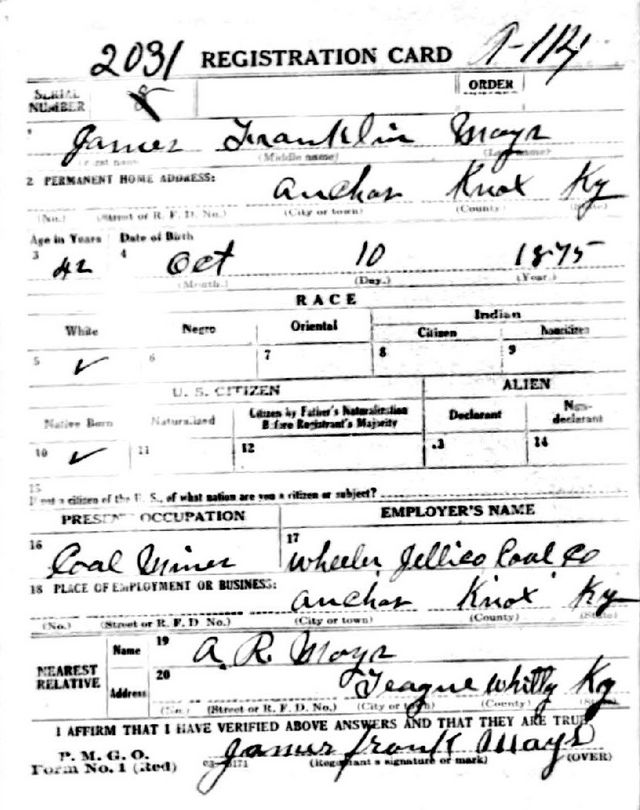 2031 REGISTRATION CARD
SERIAL NUMBER
ORDER
1 James Franklin Mays
(First name) (Middle name) (Last name)
2 PERMANENT HOME ADDRESS:
Anchor Knox Ky
(No.) (Street or R. F. D. No.) (City or town) (County) (State)
Age in Years Date of Birth
3 42 4 Oct 10 1875
(Month.) (Day.) (Year.)
RACE
White Negro Oriental Indian
Citizen Noncitizen
5 ✓ 6 7 8 9
U. S. CITIZEN ALIEN
Native Born Naturalized Citizen by Father's Naturalization Before Registrant's Majority Declarant Non-declarant
10 ✓ 11 12 13 14
15
If not a citizen of the U. S., of what nation are you a citizen or subject?
PRESENT OCCUPATION EMPLOYER'S NAME
16 Coal Miner 17 Wheeler Jellico Coal Co
18 PLACE OF EMPLOYMENT OR BUSINESS:
Anchor Knox Ky
(No.) (Street or R. F. D. No.) (City or town) (County) (State)
NEAREST RELATIVE
Name 19 A. R. Mays
Address 20 Teague Whitly Ky
(No.) (Street or R. F. D. No.) (City or town) (County) (State)
I AFFIRM THAT I HAVE VERIFIED ABOVE ANSWERS AND THAT THEY ARE TRUE
P. M. G. O.
Form No. 1 (Red) James Frank Mays
(Registrant's signature or mark) (OVER)